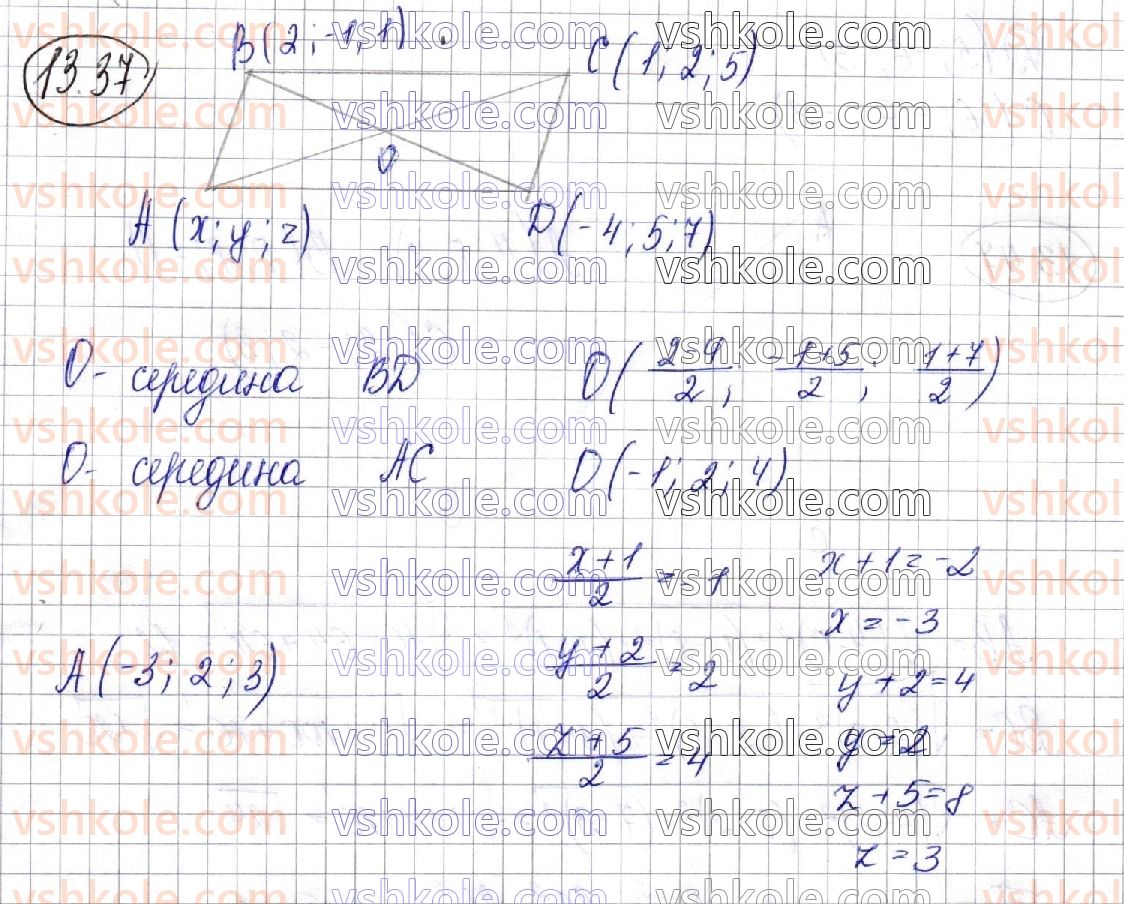 13.37
B(2; -1; 1) C(1; 2; 5)
O
A(x; y; z) D(-4; 5; 7)
O - середина BD O((2-4)/2; (-1+5)/2; (1+7)/2)
O - середина AC O(-1; 2; 4)
(x+1)/2 = -1 x+1=-2
x=-3
A(-3; 2; 3) (y+2)/2 = 2 y+2=4
(z+5)/2 = 4 y=2
z+5=8
z=3
vshkole.com